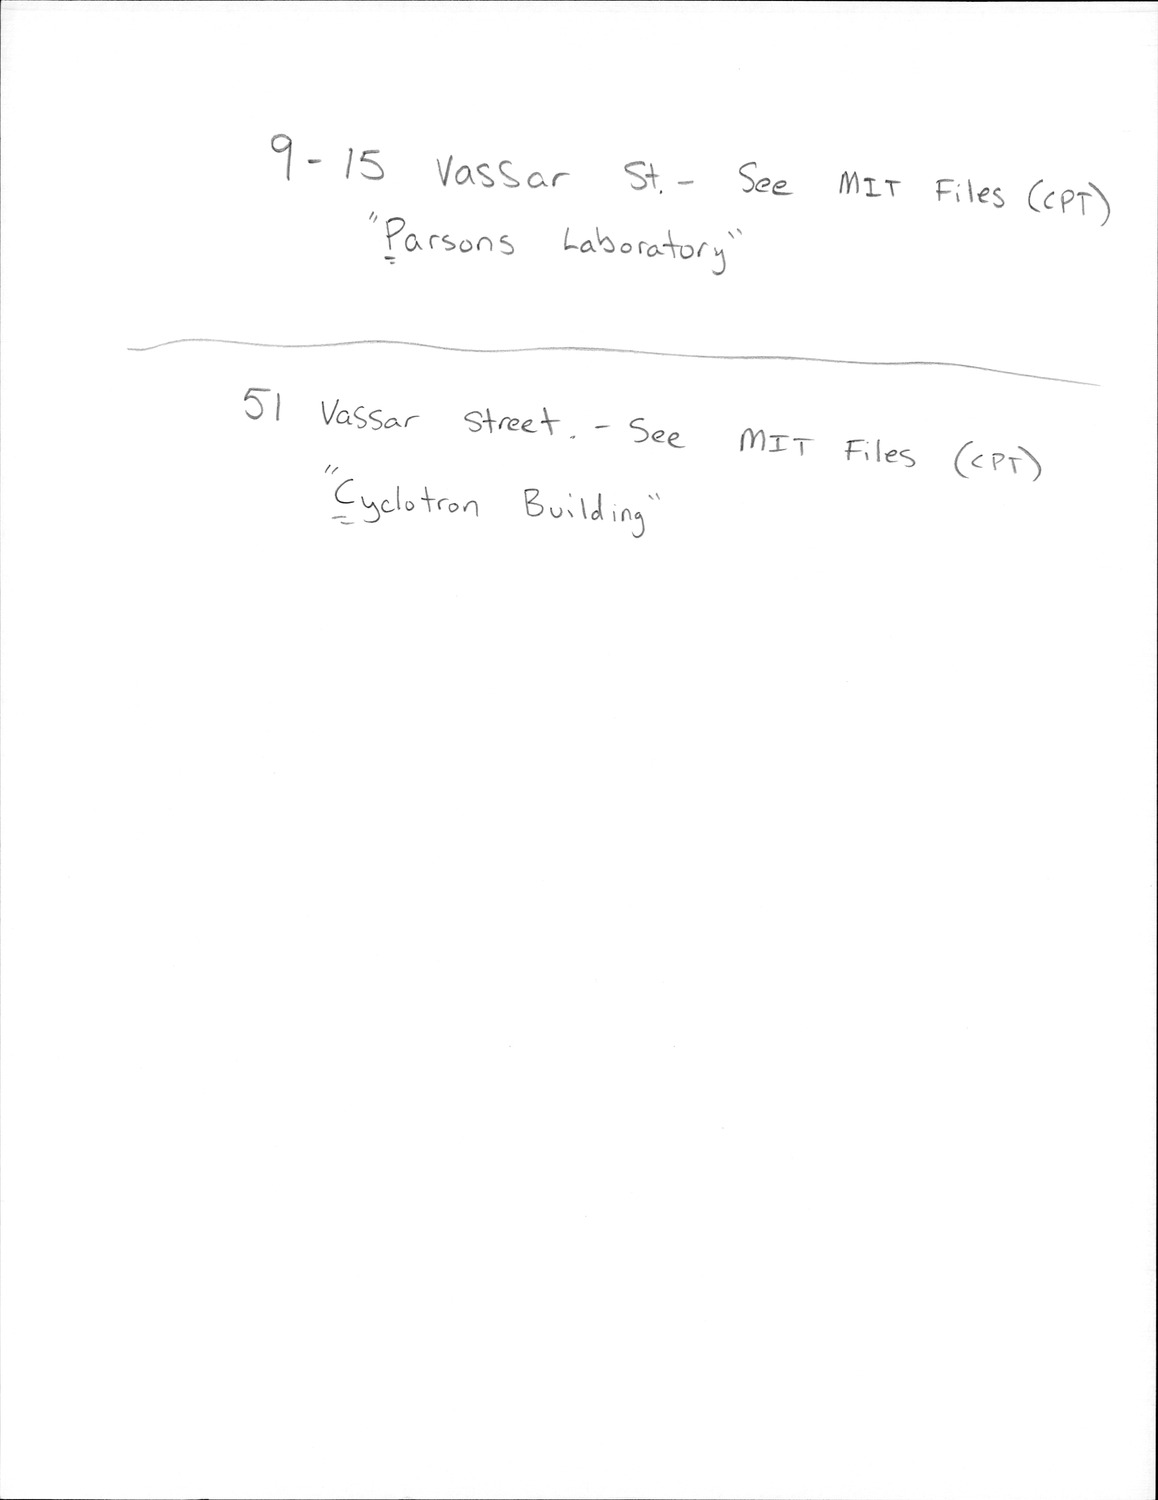 9-15 Vassar St. - See MIT Files (CPT)
"Parsons Laboratory"
51 Vassar Street. - See MIT Files (CPT)
"Cyclotron Building"